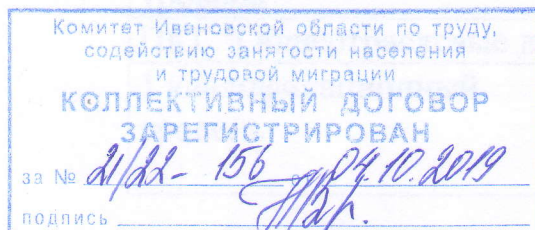 Комитет Ивановской области по труду,
содействию занятости населения
и трудовой миграции
КОЛЛЕКТИВНЫЙ ДОГОВОР
ЗАРЕГИСТРИРОВАН
за № 21/22-156 04.10.2019
подпись